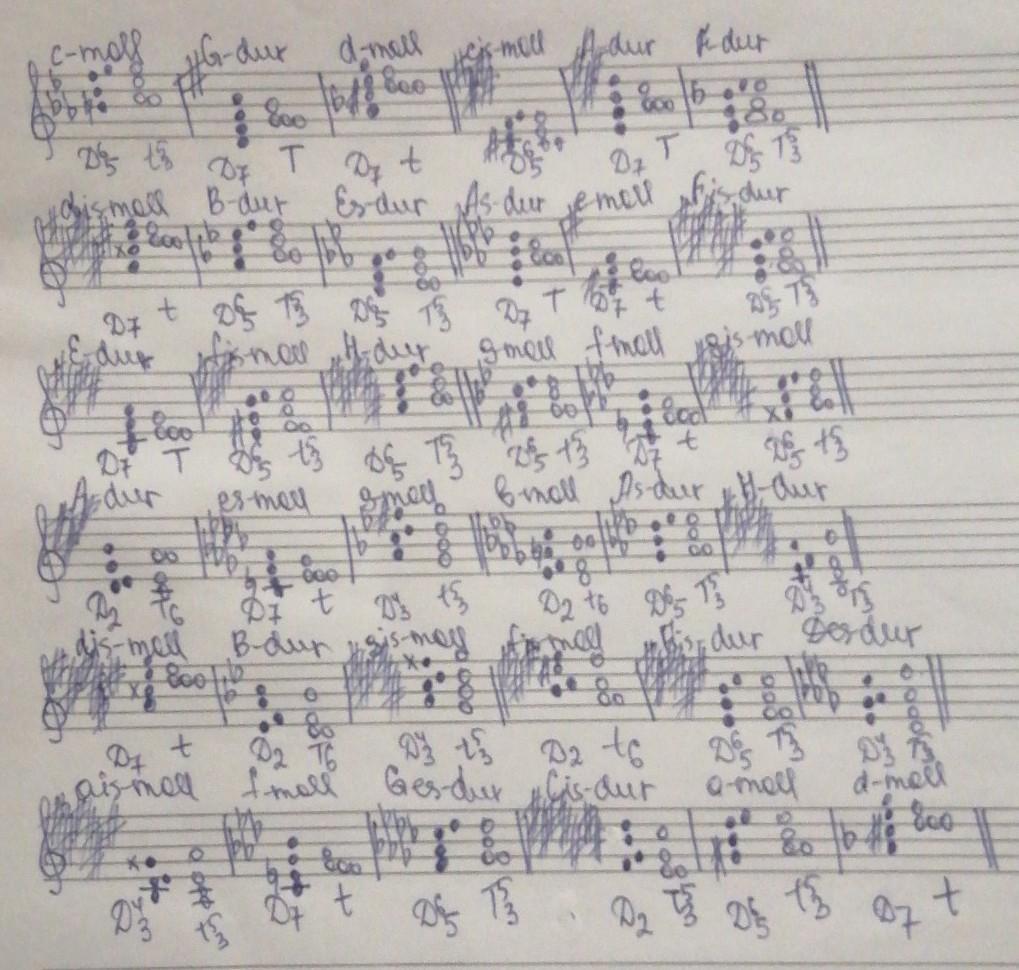 c-moll G-dur d-moll cis-moll A-dur F-dur
D6/5 t5/3 D7 T D7 t D6/5 D7 T D6/5 T5/3
dis-moll B-dur Es-dur As-dur e-moll Fis-dur
D7 t D6/5 T5/3 D6/5 T5/3 D7 T D7 t D6/5 T5/3
E-dur fis-moll H-dur g-moll f-moll gis-moll
D7 T D6/5 t5/3 D6/5 T5/3 D6/5 t5/3 D7 t D6/5 t5/3
A-dur es-moll g-moll b-moll As-dur H-dur
D2 t6 D7 t D4/3 t5/3 D2 t6 D6/5 T5/3 D4/3 T5/3
dis-moll B-dur gis-moll fis-moll Fis-dur Des-dur
D7 t D2 T6 D4/3 t5/3 D2 t6 D6/5 T5/3 D4/3 T5/3
ais-moll f-moll Ges-dur Cis-dur a-moll d-moll
D4/3 t5/3 D7 t D6/5 T5/3 D2 T5/3 D6/5 t5/3 D7 t